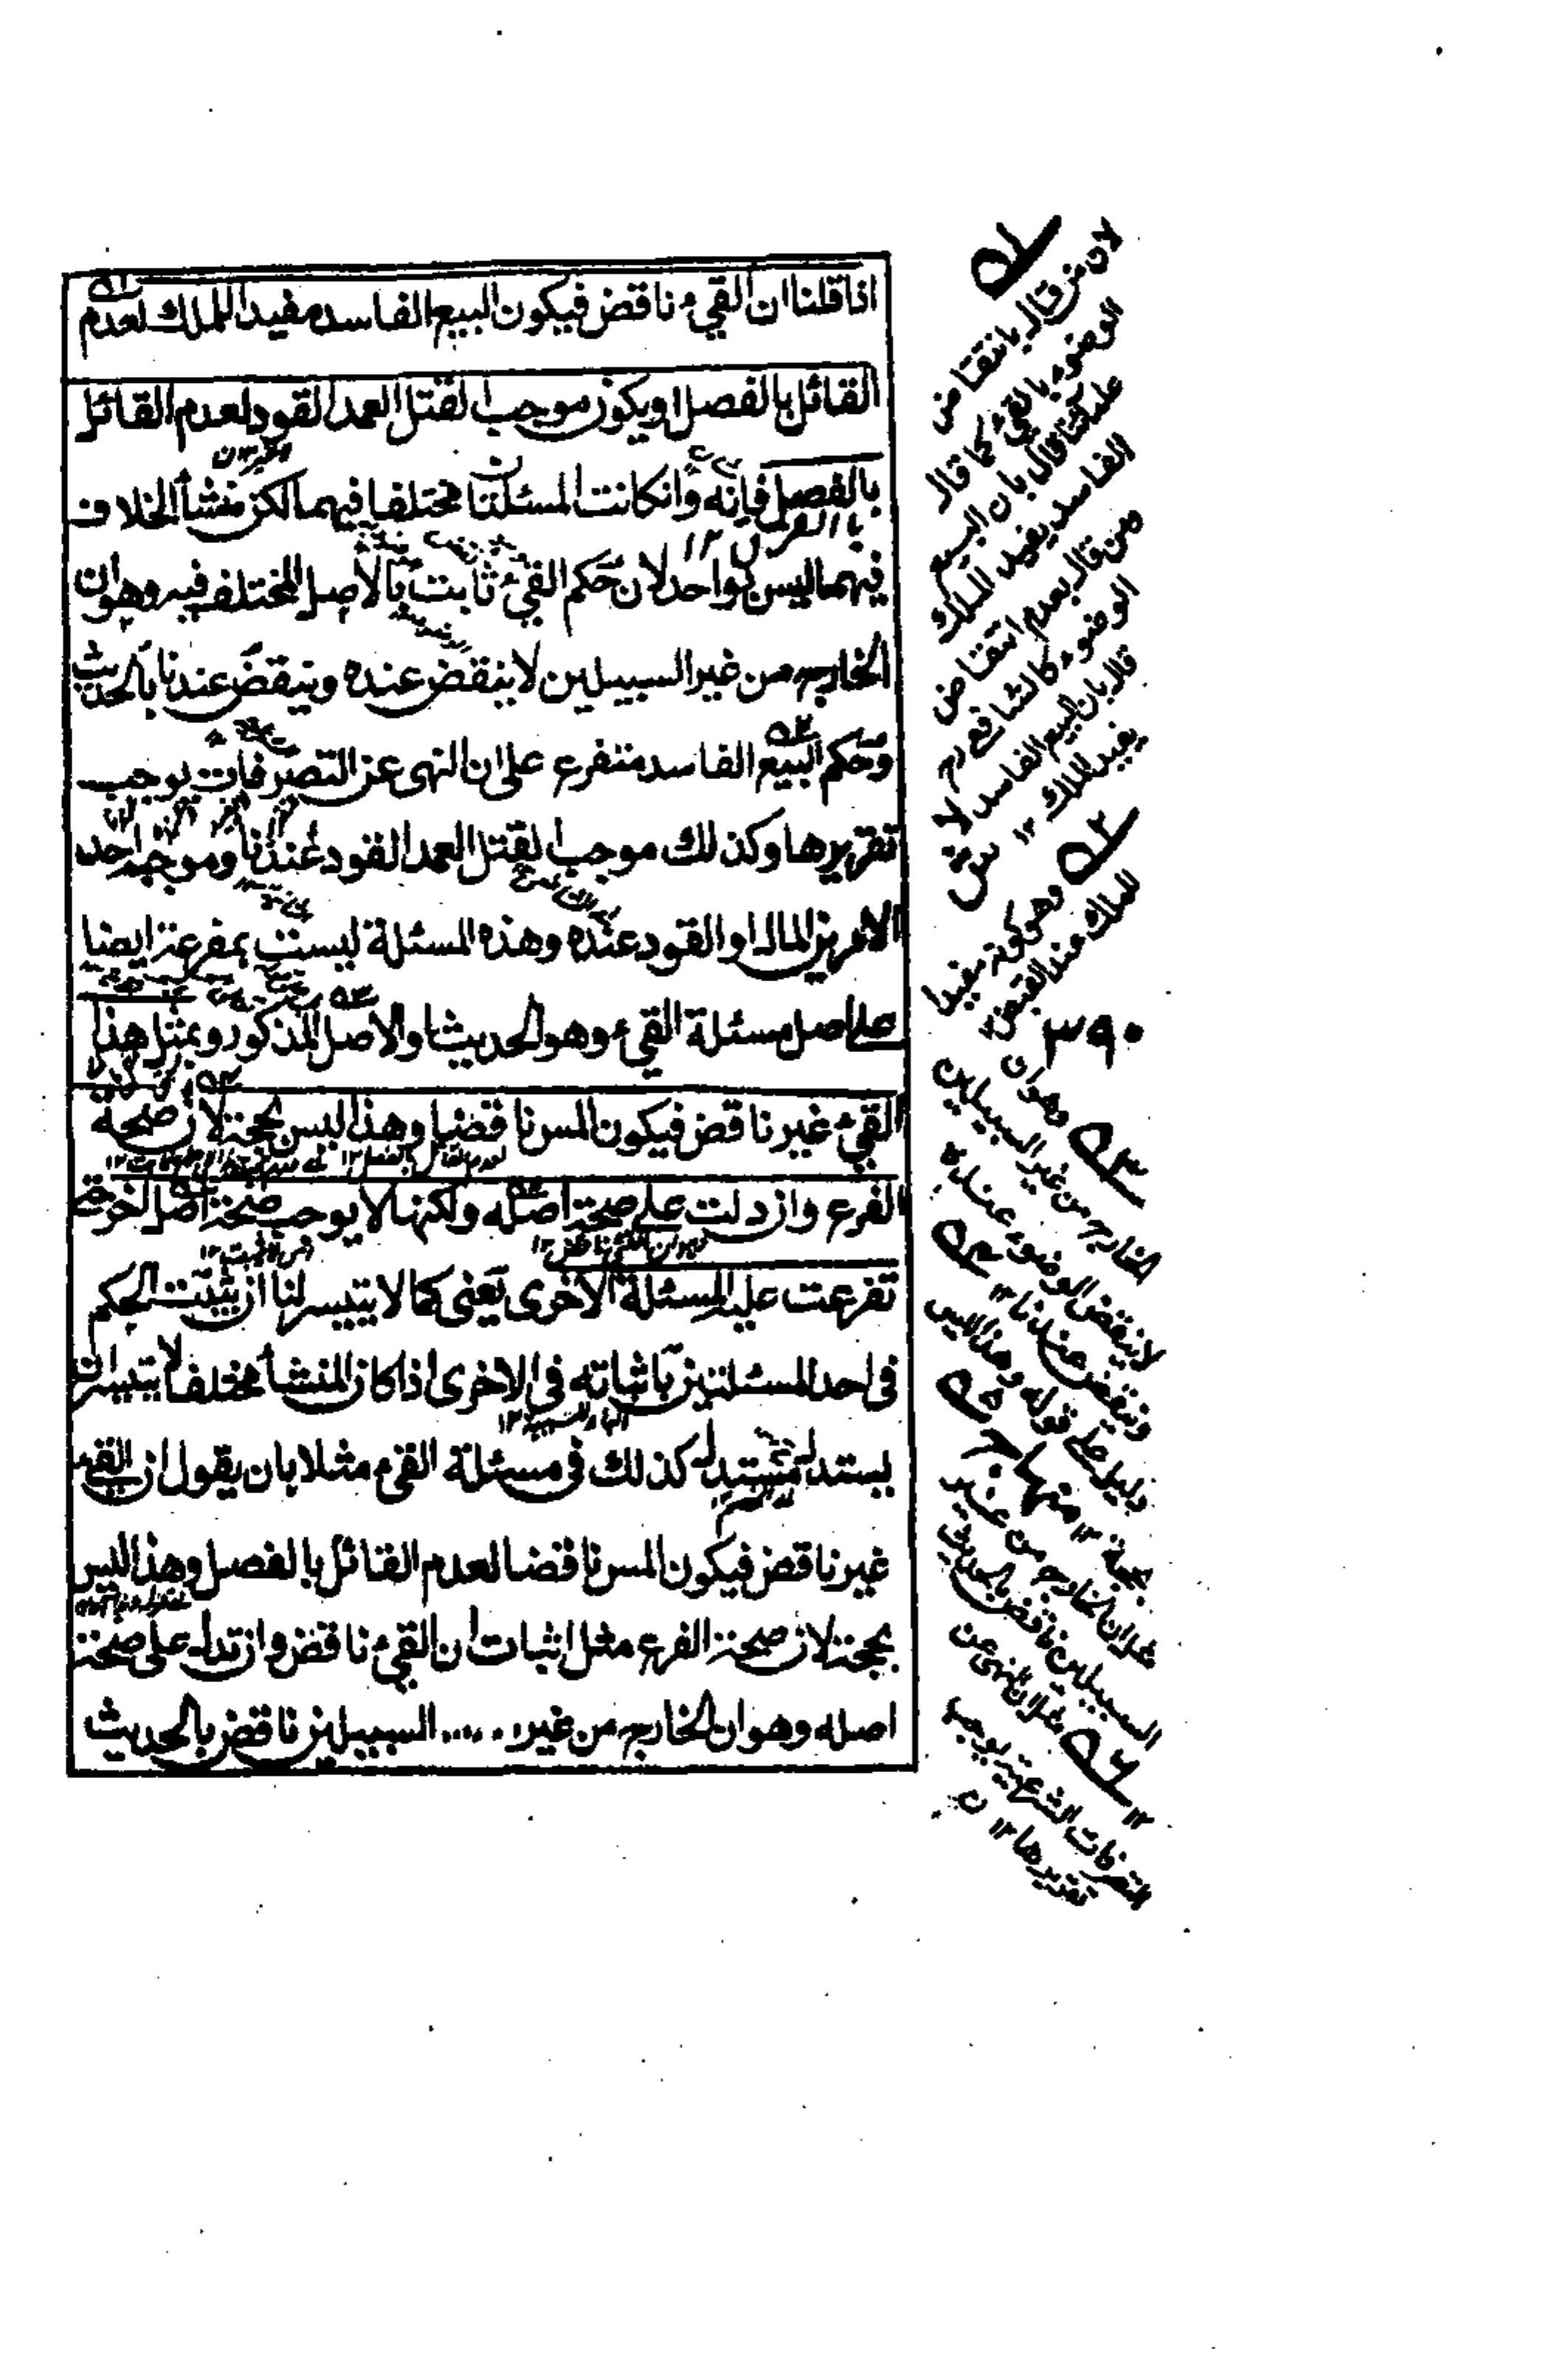 اذا قلنا ان القيء ناقض فيكون البيع الفاسد مفيدا للملك لعدم
القائل بالفصل او يكون موجب القتل العمد القود لعدم القائل
بالفصل فانه وانكانت المسئلتان مختلفا فيهما لكن منشأ الخلاف
فيهما ليس بواحد لان حكم القيء ثابت بالاصل المختلف فيه وهو ان
الخارج من غير السبيلين لا ينقض عنده وينقض عندنا بالحديث
وحكم البيع الفاسد متفرع على ان النهى عن التصرفات يوجب
تقريرها وكذلك موجب القتل العمد القود عندنا وموجبه احد
الامرين المال او القود عنده وهذه المسئلة ليست بمفرعة ايضا
على اصل مسئلة القيء وهو الحديث او الاصل المذكور وبمثل هذا
القيء غير ناقض فيكون المس ناقضا وهذا ليس بحجة لان صحة
الفرع وان دلت على صحة اصله ولكنها لا يوجب صحة اصل اخر حتى
تفرعت عليه المسئلة الاخرى يعنى كما لا يتيسر لنا ان يثبت الحكم
فى احد المسئلتين باثباته فى الاخرى اذا كان المنشأ مختلفا لا يتيسر ان
يستدل مستدل كذلك فى مسئلة القيء مثلا بان يقول ان القيء
غير ناقض فيكون المس ناقضا لعدم القائل بالفصل وهذا ليس
بحجة لان صحة الفرع مثل اثبات ان القيء ناقض وان تدل على صحة
اصله وهو ان الخارج من غير ..... السبيلين ناقض بالحديث
لان من قال بانتقاض
الوضوء بالقيء كما قال
علمائنا قال بان البيع
الفاسد يفيد الملك
من قال بعدم انتقاض
الوضوء كالشافعي رح
قال بان البيع الفاسد لا
يفيد الملك ١٢
وهو كونه مفيدا
للملك عند القبض
٣٩٠
وهو ان
الخارج من غير السبيلين
لا ينقض الوضوء عنده
وينقض عندنا ١٢
دليل على قوله وهذا ليس
بحجة ١٢
على ان الخارج من غير
السبيلين ناقض
على ان النهى عن
التصرفات الشرعية يوجب
تقريرها ١٢